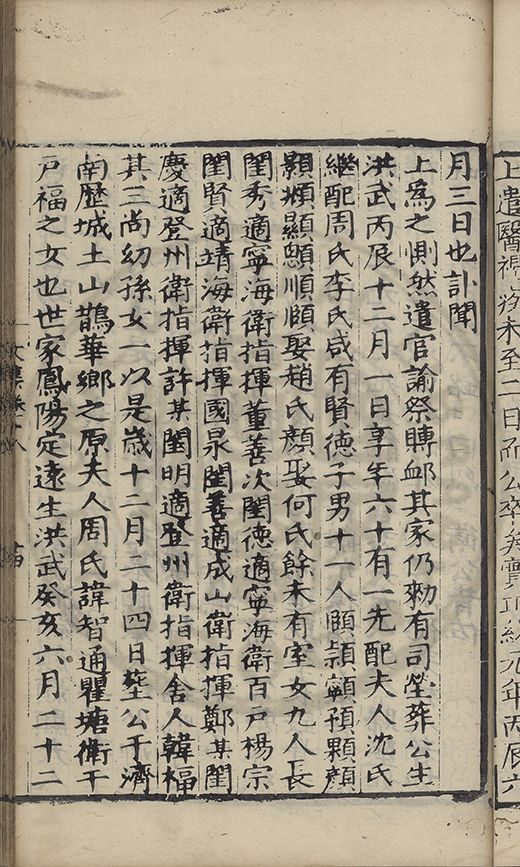 上遣醫視疾未至二日而公卒矣實正統元年丙辰六
月三日也訃聞
上為之惻然遣官諭祭賻䘏其家仍勑有司塋葬公生
洪武丙辰十二月一日享年六十有一先配夫人沈氏
継配周氏李氏咸有賢徳子男十一人頥頴預顆顔
顥頫顯順頥娶趙氏顔娶何氏餘未有室女九人長
閨秀適寧海衛指揮董善次閨徳適寧海衛百戸楊宗
閨賢適靖海衛指揮國泉閨善適成山衛指揮鄭某閨
慶適登州衛指揮許某閨明適登州衛指揮舍人韓福
其三尚幼孫女一以是歲十二月二十四日塟公于濟
南歷城土山鵲華鄉之原夫人周氏諱智通瞿塘衛千
戸福之女也世家鳳陽定逺生洪武癸亥六月二十二